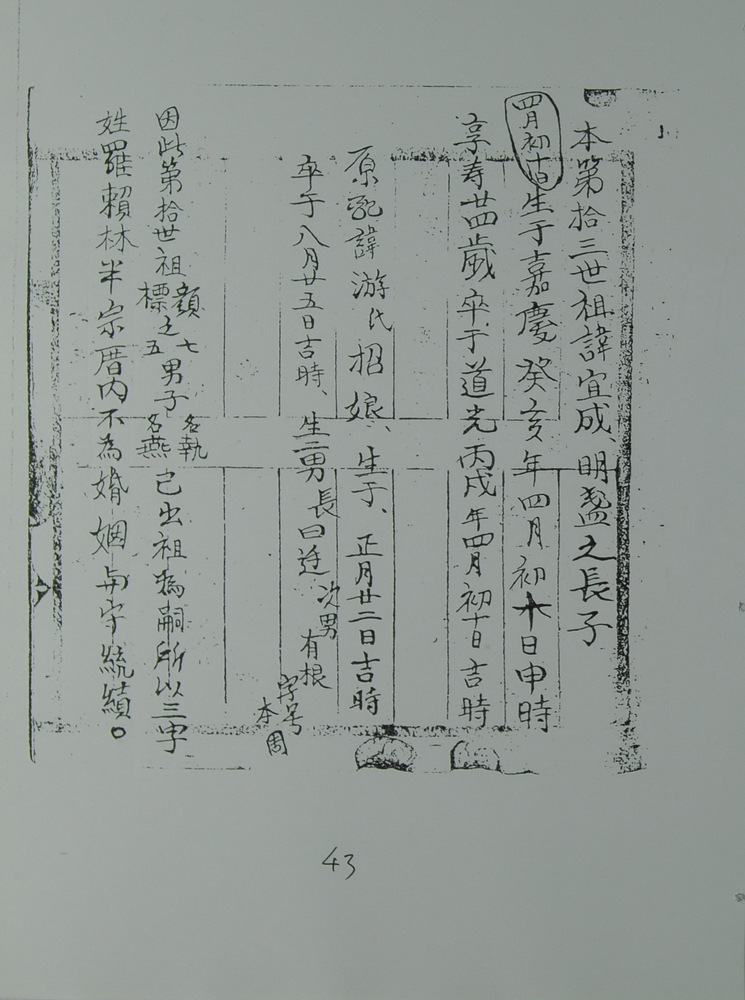 本第拾三世祖諱宜成、明盤之長子
四月初十日
生于嘉慶癸亥年四月初十日申時
享寿廿四歲卒于道光丙戌年四月初十日吉時
原配諱游氏招娘、生于、正月廿二日吉時
卒于八月廿五日吉時、生二男長曰廷
次男有根
字号
本周
因此第拾世祖顏標之七五男子名執名燕已出祖為嗣所以三字
姓羅賴林半宗厝内不為婚姻与字統績。
43